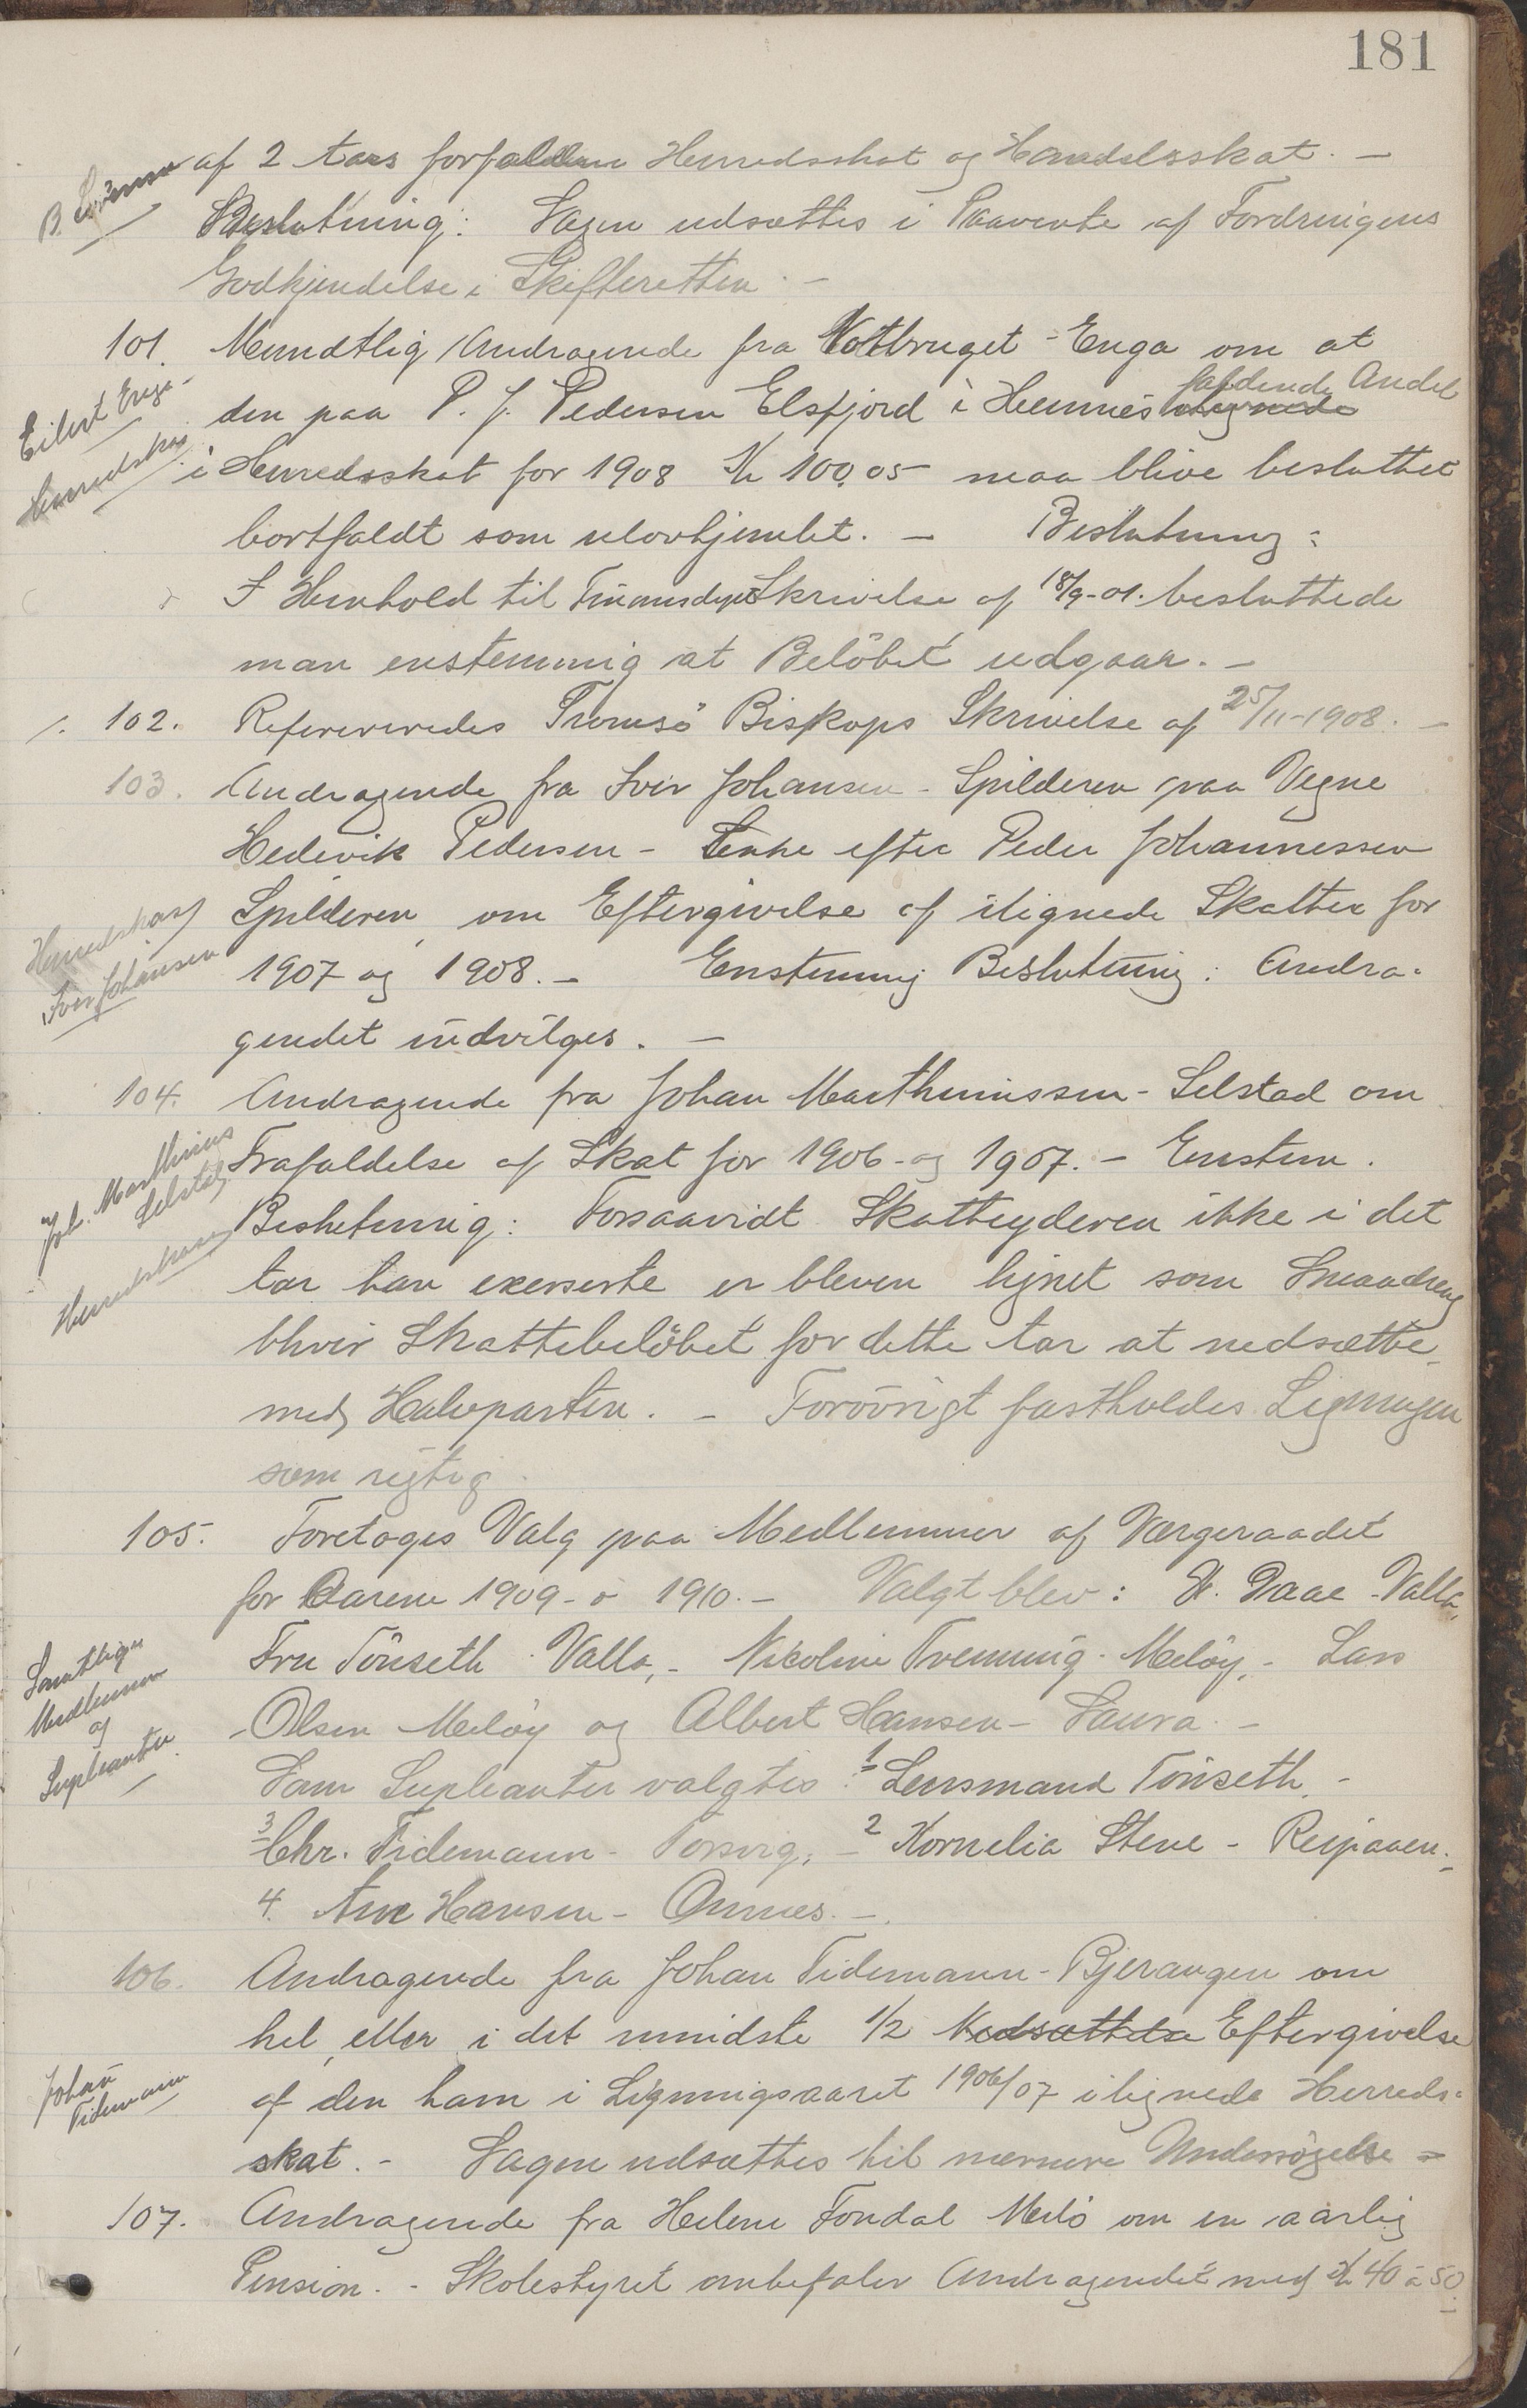 181
B.
af 2 Aars forfalden Herredsskat og Handelsskat. —
Beslutning: Sagen udsættes i Paavente af Fordringens
Godkjendelse i Skifteretten. —
101. Mundtlig Andragende fra Notbruget Enga om at
Eilert Enga
den paa P. J. Pedersen Elsfjord i Hemnes faldende Andel
Herredskas
i Herredsskat for 1908 Kr 100,05 maa blive besluttet
bortfaldt som ulovhjemlet. — Beslutning:
I Henhold til Finansdept Skrivelse af 18/9-01. besluttede
man enstemmig at Belöbet udgaar. —
102. Refererredes Tromsö Biskops Skrivelse af 25/11-1908. —
103. Andragende fra Iver Johansen - Spilderen paa Vegne
Hedevik Pedersen - Enke efter Peder Johannessen
Herredskas
Spilderen, om Eftergivelse af ilignede Skatter for
Iver Johansen
1907 og 1908. — Enstemmig Beslutning: Andra-
gendet indvilges. —
104. Andragende fra Johan Marthinissen - Selstad om
Joh. Marthinus
Selstad
Frafaldelse af Skat for 1906 og 1907. — Enstem.
Beslutning: Forsaavidt Skatteyderen ikke i det
Herredskas
Aar han exerserte er bleven lignet som Smaadreng
bliver Skattebelöbet for dette Aar at nedsætte
med Halvparten. — Forövrigt fastholdes Ligningen
som rigtig.
105. Foretoges Valg paa Medlemmer af Værgeraadet
for Aarene 1909 - o 1910. — Valgt blev: Daae - Valla,
Samtlige
Medlemmer
og
Supleanter
Fru Tönseth Valla, - Nikoline Tvenning - Melöy, - Lars
Olsen Melöy og Albert Hansen - Saura. —
Som Supleanter valgtes: 1 Lensmand Tönseth, -
3 Chr. Tidemann - Torsvig, - 2 Kornelia Stene - Reipaaen.
4. Ane Hansen - Ørnes. —
106. Andragende fra Johan Tidemann - Bjerangen om
hel, eller i det mindste 1/2 Nedsættelse Eftergivelse
Johan
Tidemann
af den ham i Ligningsaaret 1906/07 ilignede Herreds-
skat. - Sagen udsættes til nærmere Undersögelse —
107. Andragende fra Helene Fondal Melö om en aarlig
Pension. - Skolestyret anbefaler Andragendet med Kr 40 à 50